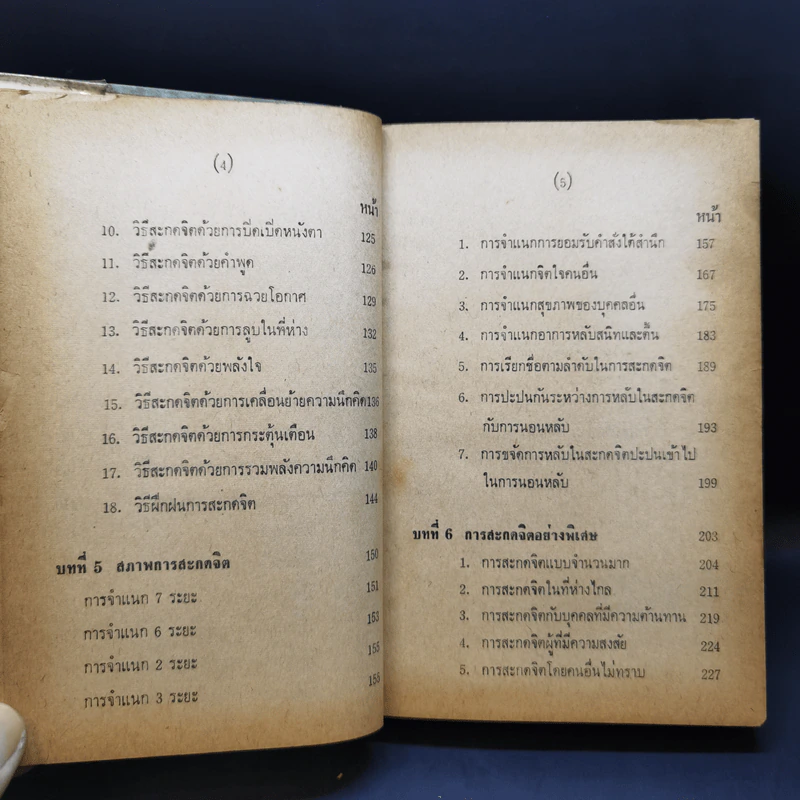 (4)
หน้า
10. วิธีสะกดจิตด้วยการปิดเปิดหนังตา 125
11. วิธีสะกดจิตด้วยคำพูด 126
12. วิธีสะกดจิตด้วยการฉวยโอกาศ 129
13. วิธีสะกดจิตด้วยการลูบในที่ห่าง 132
14. วิธีสะกดจิตด้วยพลังใจ 135
15. วิธีสะกดจิตด้วยการเคลื่อนย้ายความนึกคิด 136
16. วิธีสะกดจิตด้วยการกระตุ้นเตือน 138
17. วิธีสะกดจิตด้วยการรวมพลังความนึกคิด 140
18. วิธีฝึกฝนการสะกดจิต 144
บทที่ 5 สภาพการสะกดจิต 150
การจำแนก 7 ระยะ 151
การจำแนก 6 ระยะ 153
การจำแนก 2 ระยะ 155
การจำแนก 3 ระยะ 155
(5)
หน้า
1. การจำแนกการยอมรับคำสั่งใต้สำนึก 157
2. การจำแนกจิตใจคนอื่น 167
3. การจำแนกสุขภาพของบุคคลอื่น 175
4. การจำแนกอาการหลับสนิทและตื้น 183
5. การเรียกชื่อตามลำดับในการสะกดจิต 189
6. การปะปนกันระหว่างการหลับในสะกดจิต
กับการนอนหลับ 193
7. การขจัดการหลับในสะกดจิตปะปนเข้าไป
ในการนอนหลับ 199
บทที่ 6 การสะกดจิตอย่างพิเศษ 203
1. การสะกดจิตแบบจำนวนมาก 204
2. การสะกดจิตในที่ห่างไกล 211
3. การสะกดจิตกับบุคคลที่มีความต้านทาน 219
4. การสะกดจิตผู้ที่มีความสงสัย 224
5. การสะกดจิตโดยคนอื่นไม่ทราบ 227